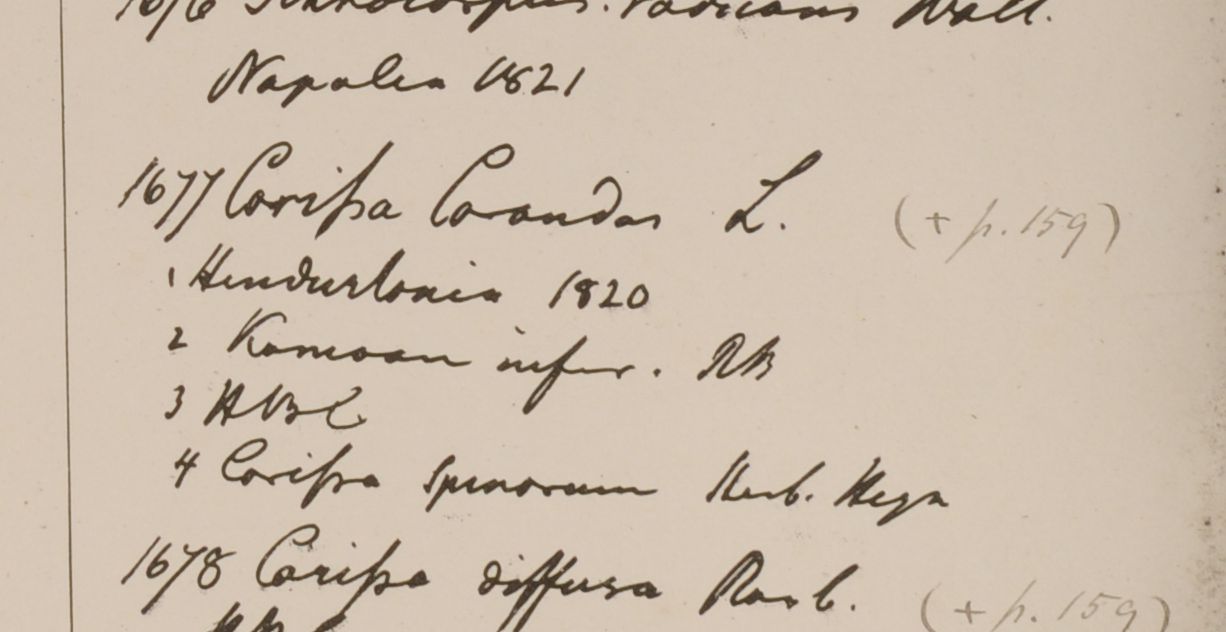 1676 radicans Wall.
Napalia 1821
1677 Carißa Carandas L. (+ p. 159)
1 Hindustania 1820
2 Kamaon infer. RB
3 HBC
4 Carißa spinarum Herb. Heyn
1678 Carißa diffusa Roxb. (+ p. 159)
HBC